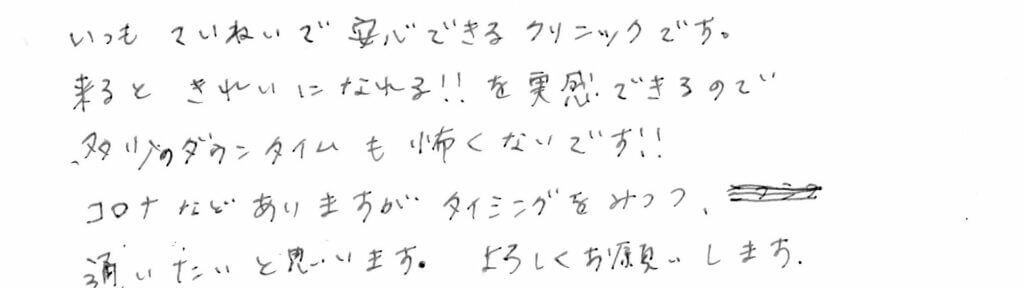 いつも ていねいで 安心できる クリニックです。
来ると きれいになれる!! を実感できるので
多少のダウンタイムも怖くないです!!
コロナなどありますが タイミングをみつつ、
通いたいと思います。 よろしくお願いします。